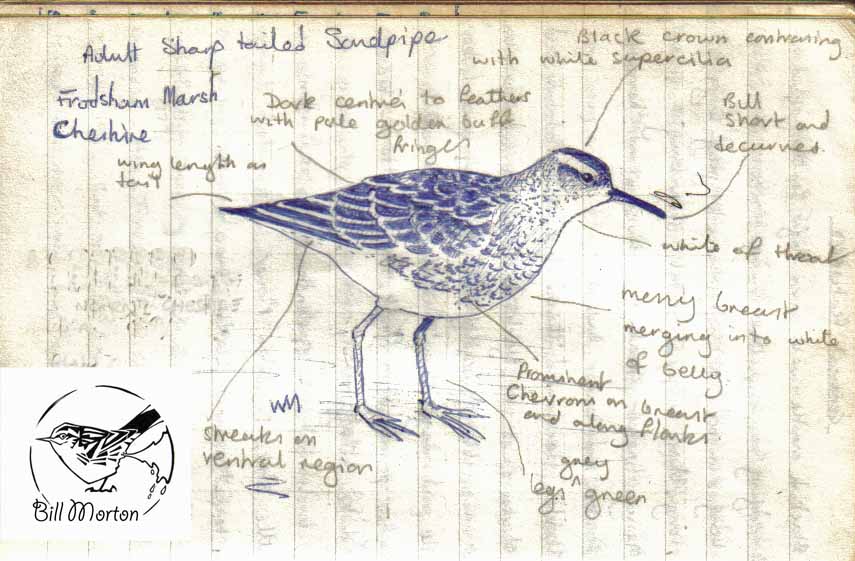 Adult Sharp tailed Sandpiper
Frodsham Marsh
Cheshire
Black crown contrasing
with white supercilia
Dark centre's to feathers
with pale golden buff
fringes
Bill
Short and
decurved.
wing length as
tail
white of throat
messy breast
merging into white
of belly
Prominent
Chevrons on breast
and along flanks.
streaks on
ventral region
grey
legs ^ green
WM
Bill Morton